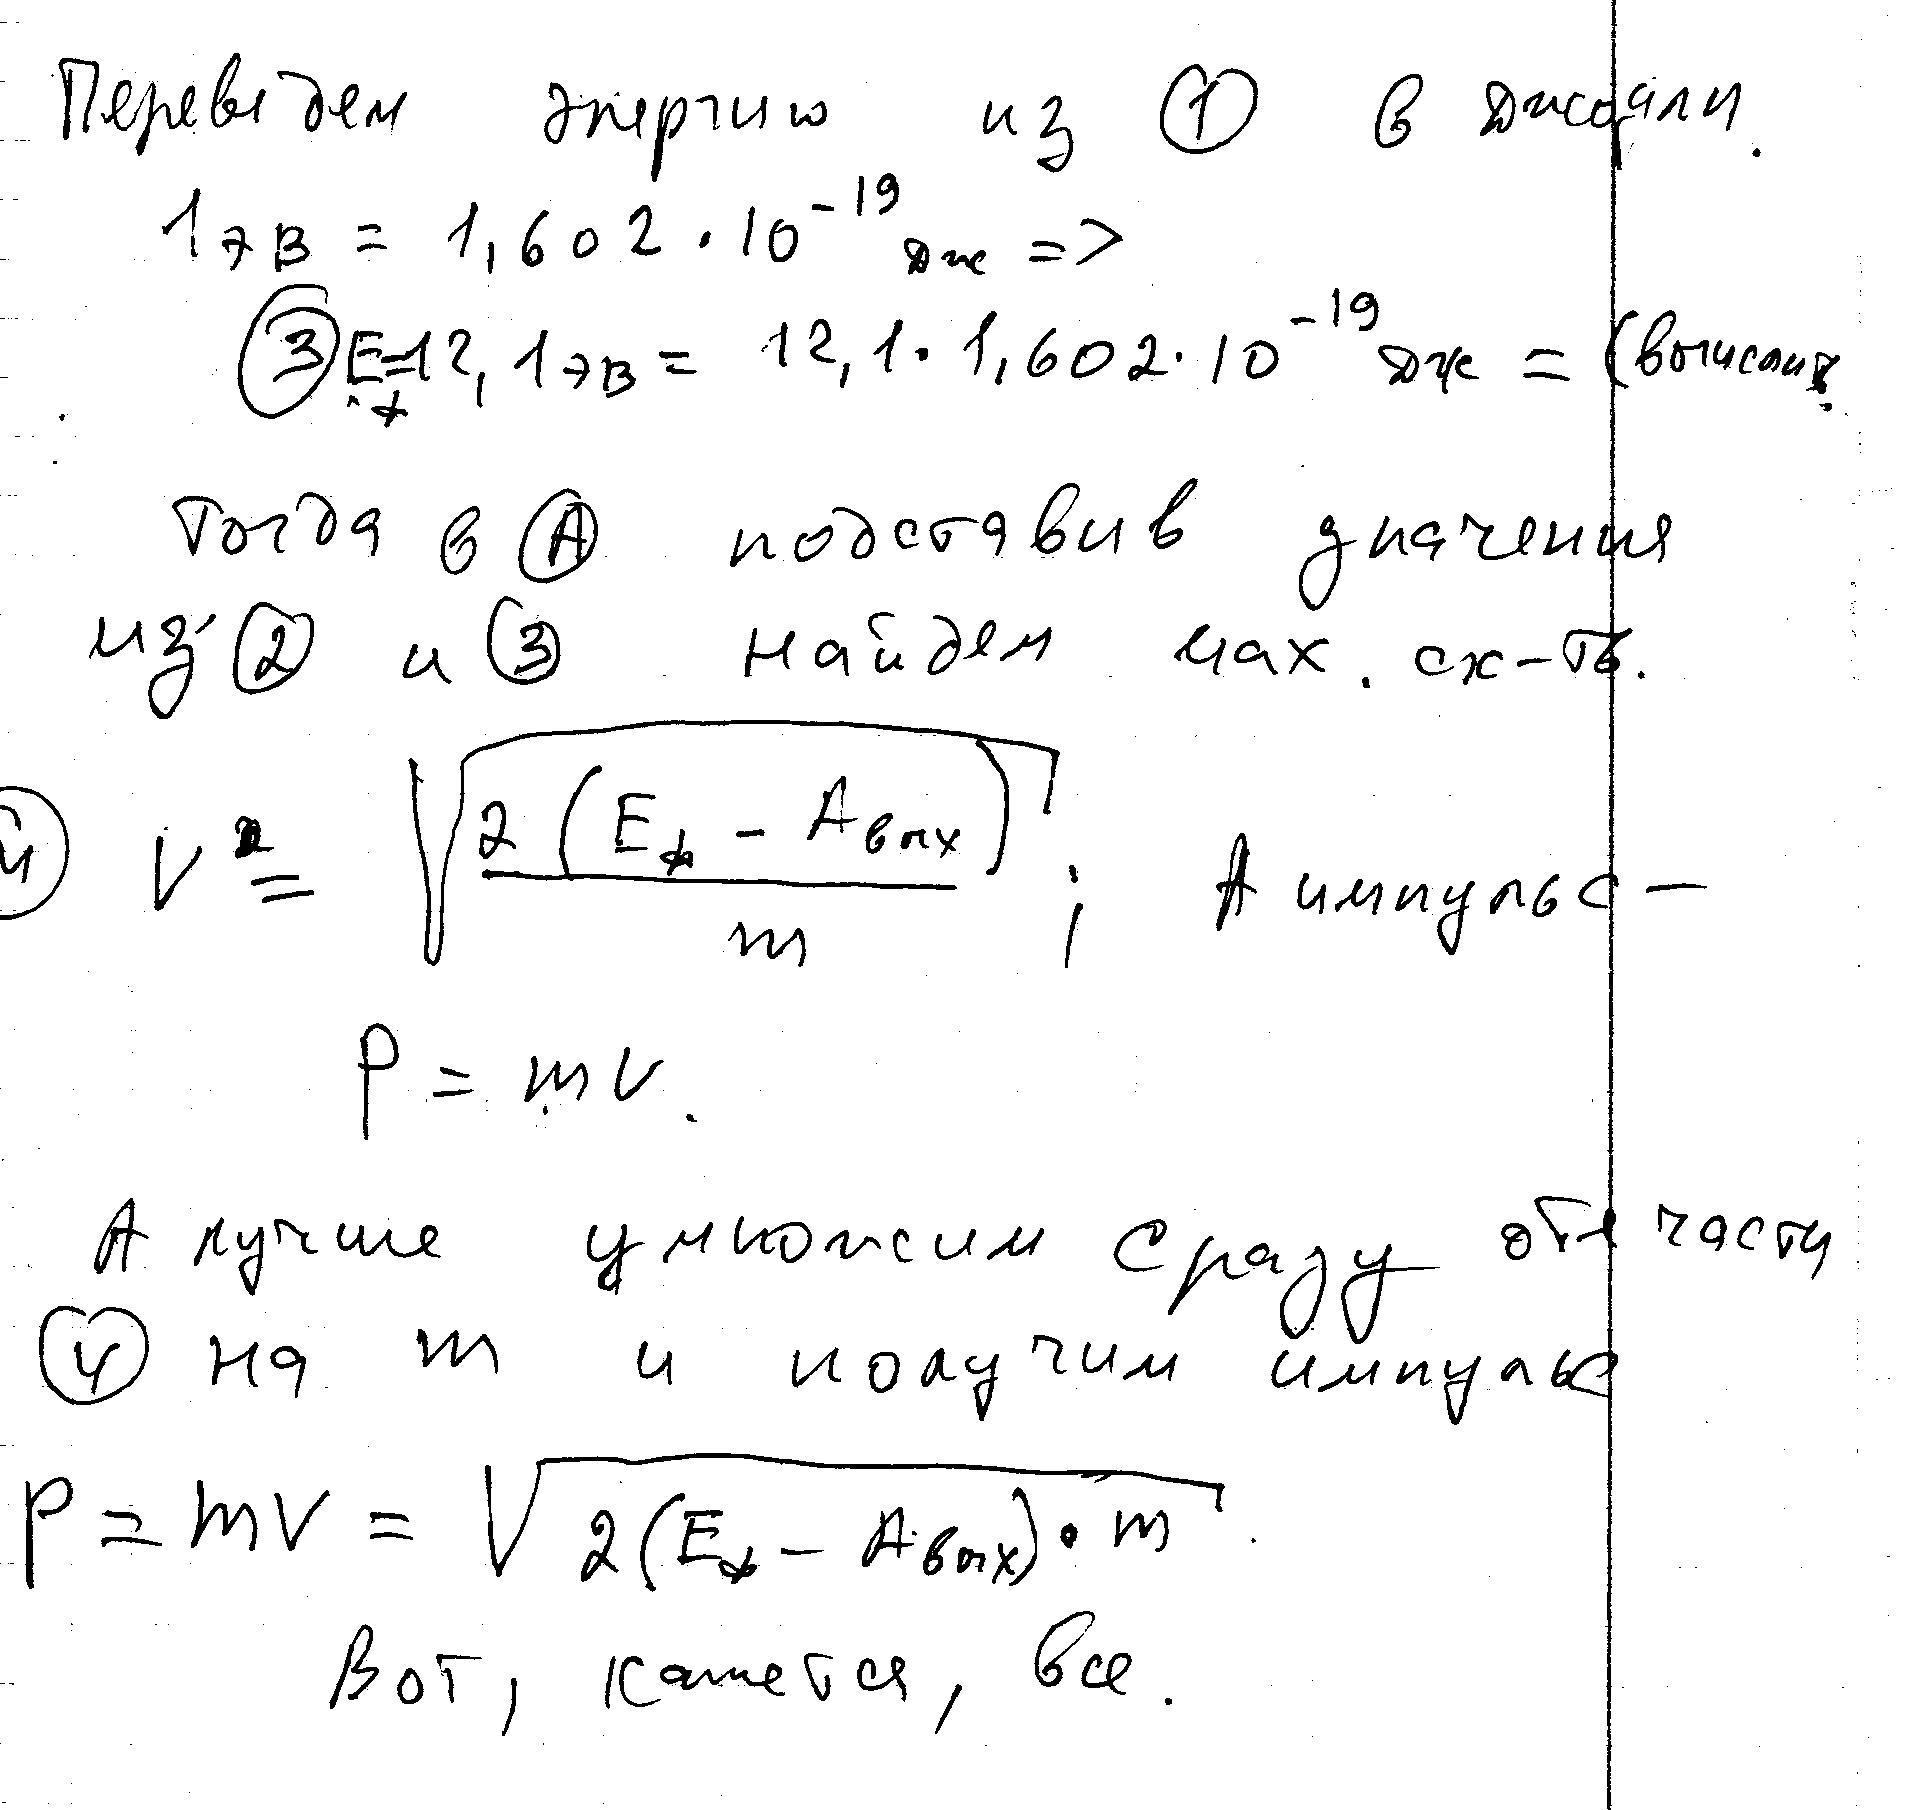 Переведем энергию из ① в джоули.
1 эВ = 1,602 · 10⁻¹⁹ Дж =>
③ Eф = 12,1 эВ = 12,1 · 1,602 · 10⁻¹⁹ Дж = (вычислить
Тогда в Ⓐ подставив значения
из ② и ③ найдем мах. ск-ть.
④ V = √(2(Eф - Aвых)/m) ; А импульс -
P = mV.
А лучше умножим сразу обе части
④ на m и получим импульс
P = mV = √(2(Eф - Aвых) · m) .
Вот, кажется, все.